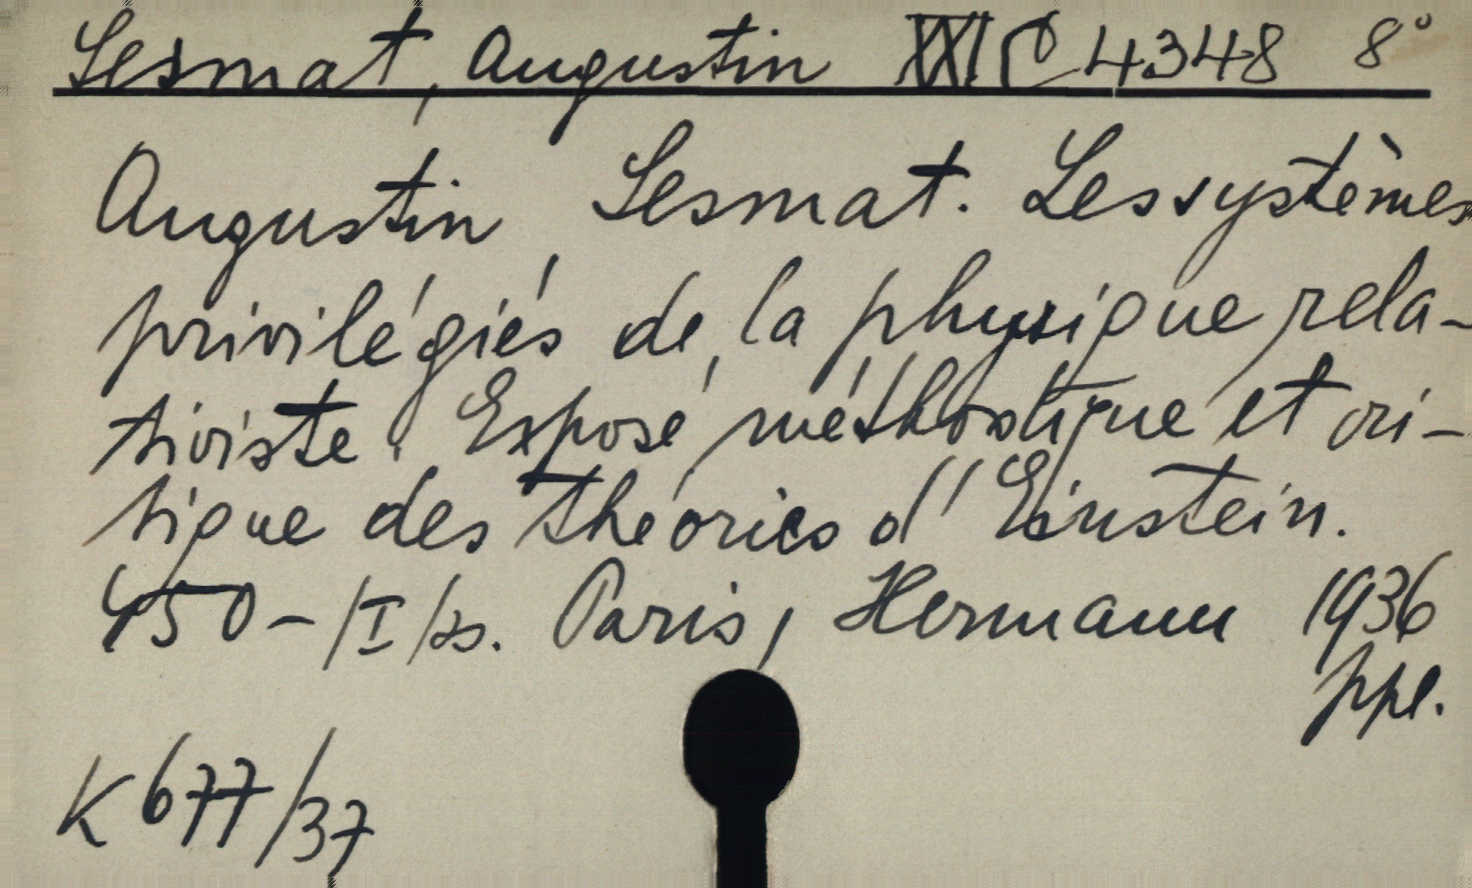 Sesmat, Augustin XXI C 4348 8°
Augustin Sesmat. Les systèmes
privilégiés de la physique rela-
tiviste. Exposé méthodique et cri-
tique des théories d'Einstein.
450 - /I/ s. Paris, Hermann 1936
ppl.
K 677/37